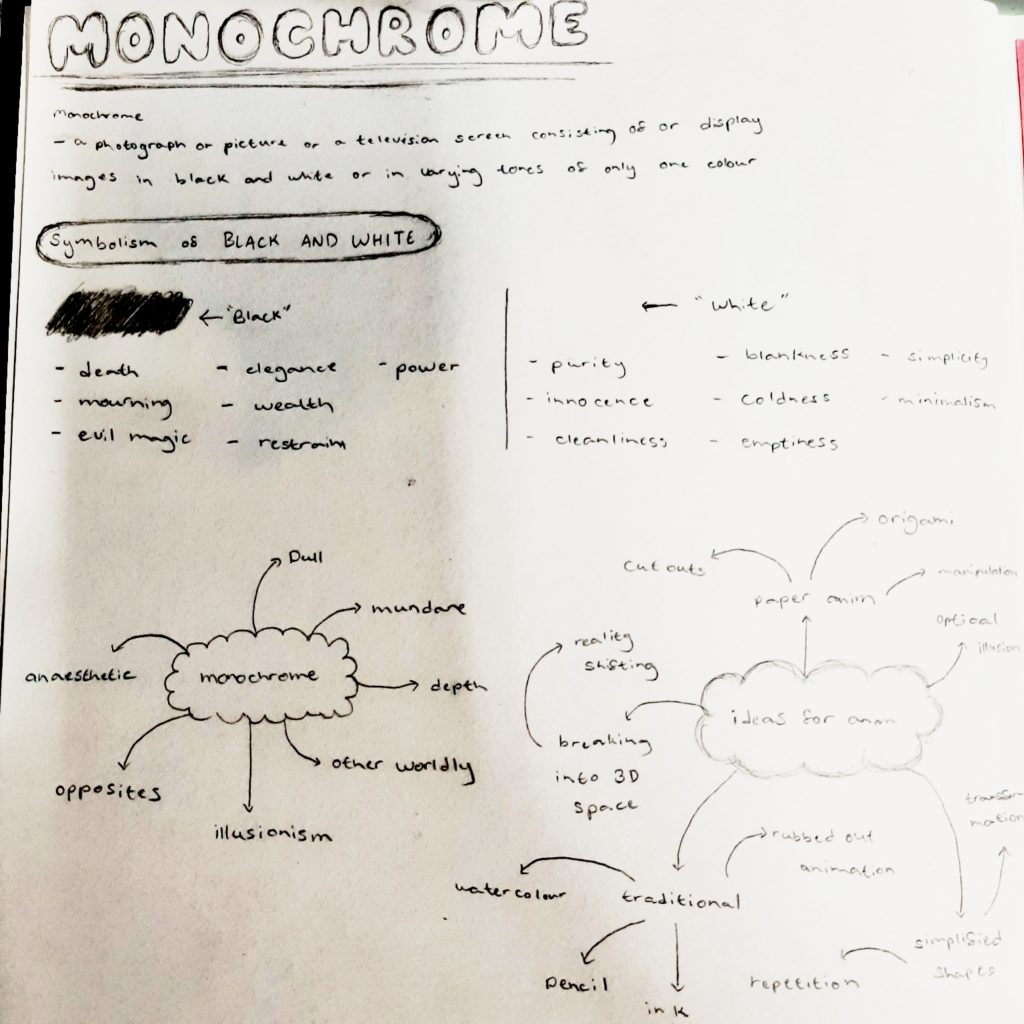 MONOCHROME
monochrome
- a photograph or picture or a television screen consisting of or display
images in black and white or in varying tones of only one colour
Symbolism of BLACK AND WHITE
← "Black"
- death
- mourning
- evil magic
- elegance
- wealth
- restraim
- power
← "White"
- purity
- innocence
- cleanliness
- blankness
- coldness
- emptiness
- simplicity
- minimalism
monochrome
Dull
mundane
depth
other worldly
illusionism
opposites
anaesthetic
ideas for anim
paper anim
cut outs
origami
manipulation
optical
illusion
breaking
into 3D
space
reality
shifting
traditional
rubbed out
animation
watercolour
pencil
ink
simplified
shapes
repetition
transfor
mation